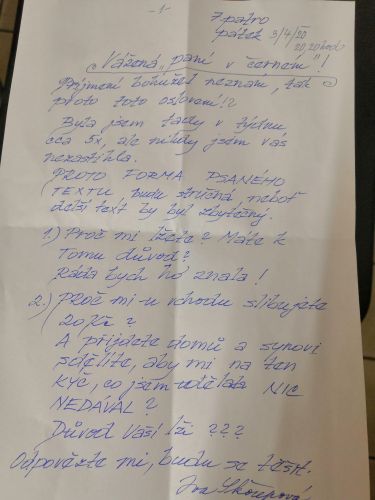 -1-
7. patro
pátek 3/4/20
20,20 hod
Vážená „paní v černém"!
Příjmení bohužel neznám, tak
proto toto oslovení!?
Byla jsem tady v týdnu
cca 5x, ale nikdy jsem vás
nezastihla.
PROTO FORMA PSANÉHO
TEXTU bude stručná, neboť
delší text by byl zbytečný.
1.) Proč mi lžete? Máte k
tomu důvod?
Ráda bych ho znala!
2.) PROč mi u vchodu slibujete
20,Kč?
A přijdete domů a synovi
sdělíte, aby mi na ten
KÝČ, co jsem udělala NIC
NEDÁVAL?
DŮVOD Vaší lži ???
Odpovězte mi, budu se těšit.
Iva